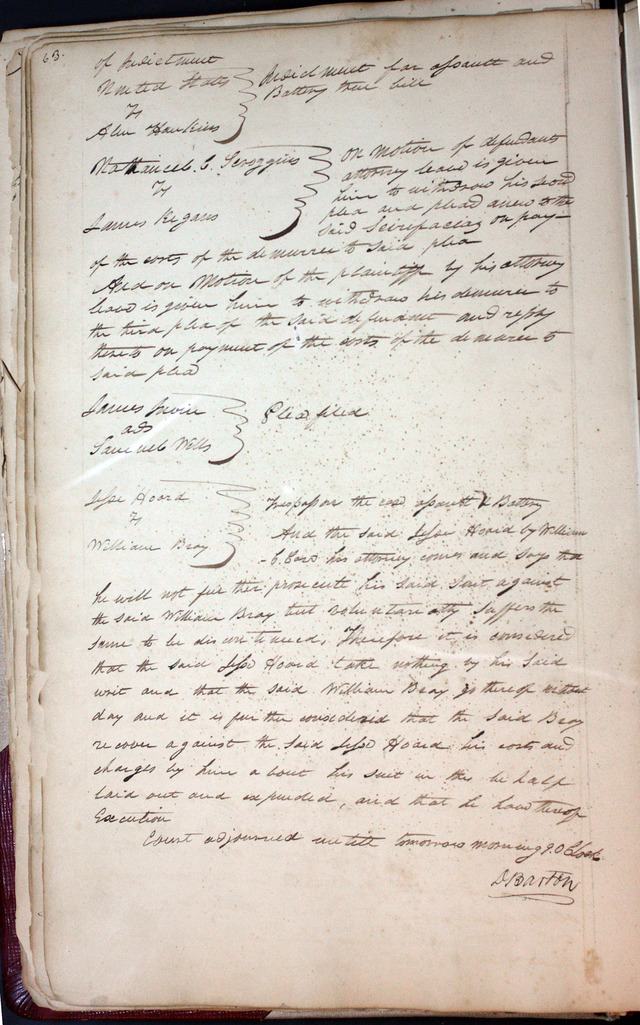 63.
of Indictment
United States
vs
Alen Hawkins
Indictment for assault and
Battery true bill
Nathaniel C. Scroggins
vs
James Regans
On Motion of defendants
attorney leave is given
him to withdraw his second
plea and plead anew to the
said Scirefacias on pay-
of the costs of the demurrer to said plea
And on Motion of the plaintiff by his attorney
leave is given him to withdraw his demurer to
the third plea of the said defendant and reply
thereto on payment of the costs of the demurer to
said plea
James Irvin
ads
Samuel Wells
Plea filed
Jesse Hoard
vs
William Bray
Trespass on the case assault & Battery
And the said Jesse Hoard by William
C. his attorney comes and says that
he will not further prosecute his said Suit against
the said William Bray but voluntaraly Suffers the
same to be discontinued, Therefore it is considered
that the said Jesse Hoard take nothing by his said
writ and that the said William Bray go thereof without
day and it is further considered that the said Bray
recover against the said Jesse Hoard his costs and
charges by him about his suit in this behalf
laid out and expended, and that he have thereof
Execution
Court adjourned untill tomorrow morning 9. OClock
D Barton